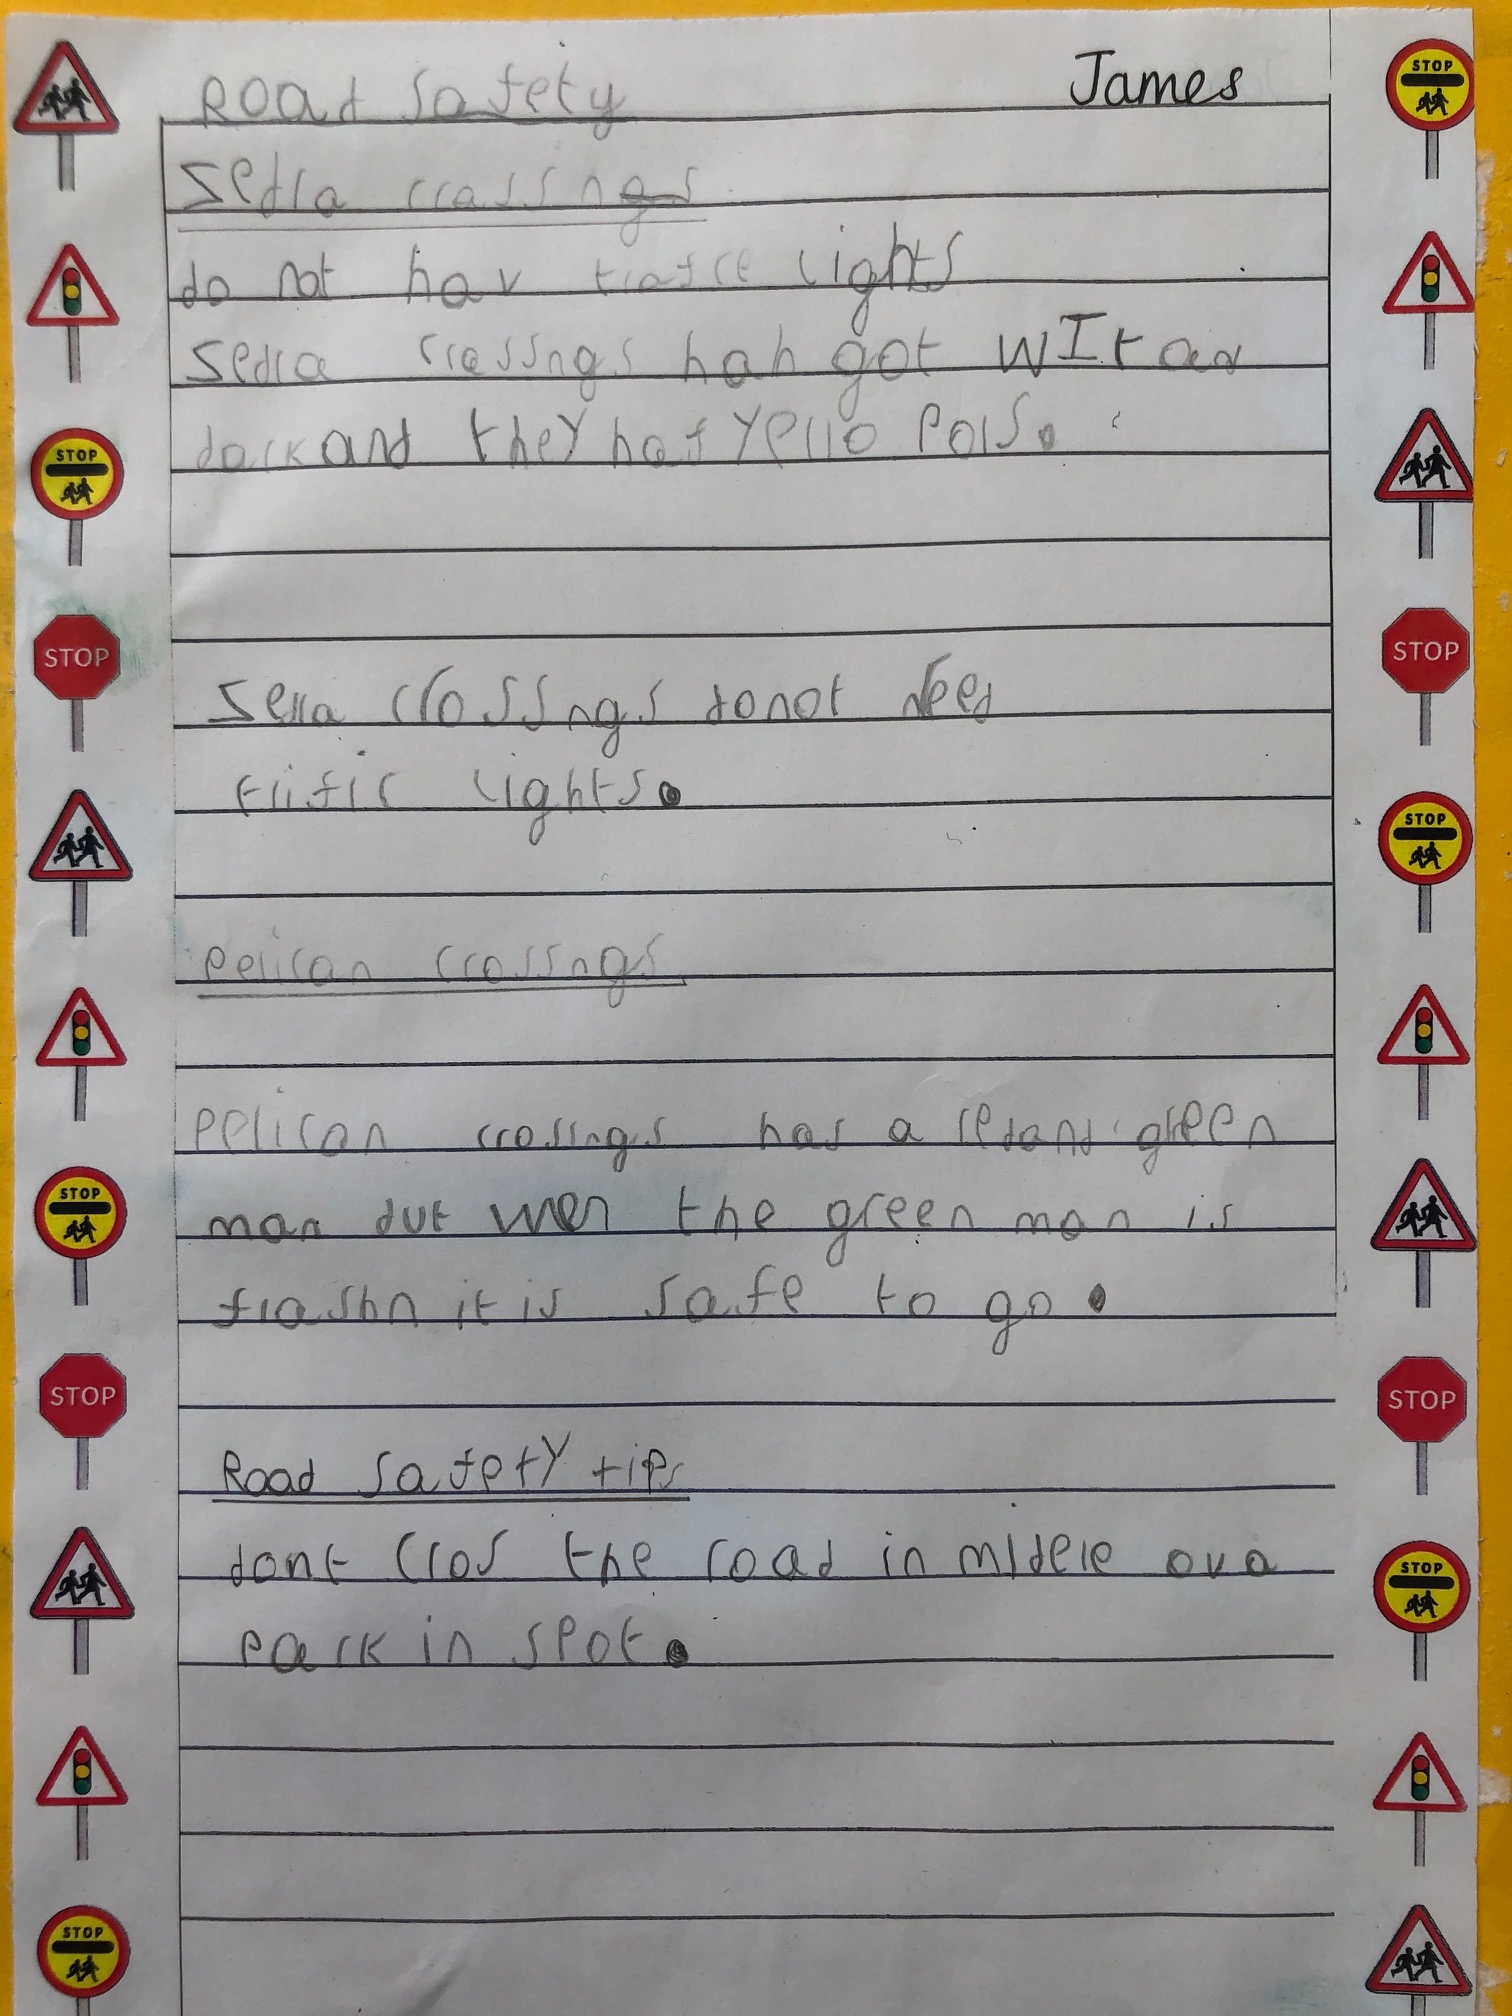 Road Safety
James
Sedra crossings
do not hav trafce lights
Sedra crossings hah got WIt an
dark and they haf Yello Pols.
Serra crossings do not need
trific lights.
Pelican crossngs
Pelican crossings has a red and green
man but wen the green man is
flashn it is safe to go.
Road Safety tips
dont cros the road in middele ov a
park in spot.
STOP
STOP
STOP
STOP
STOP
STOP
STOP
STOP
STOP
STOP
STOP